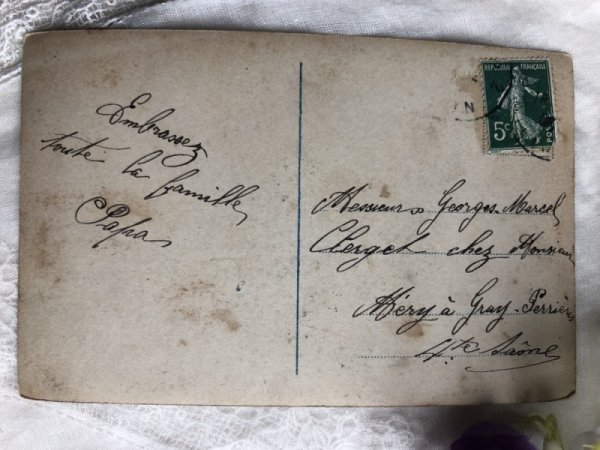 Embrassez
toute la famille
Papa
REPUBLIQUE FRANÇAISE
5c
POS
N
Messieurs Georges-Marcel
Clerget chez Monsieur
Méry à Gray-Perrières
Hte Saône